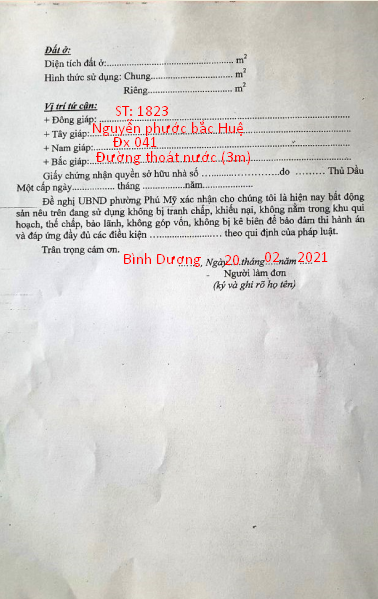 Đất ở:
Diện tích đất ở:.................................................. m2
Hình thức sử dụng: Chung................................ m2
Riêng................................ m2
Vị trí tứ cận:
+ Đông giáp: ST: 1823
+ Tây giáp: Nguyễn phước bắc Huệ
+ Nam giáp: Đx 041
+ Bắc giáp: Đường thoát nước (3m)
Giấy chứng nhận quyền sở hữu nhà số ............................do ......... Thủ Dầu
Một cấp ngày................ tháng ................năm..................
Đề nghị UBND phường Phú Mỹ xác nhận cho chúng tôi là hiện nay bất động
sản nêu trên đang sử dụng không bị tranh chấp, khiếu nại, không nằm trong khu qui
hoạch, thế chấp, bảo lãnh, không góp vốn, không bị kê biên để bảo đảm thi hành án
và đáp ứng đầy đủ các điều kiện ........................ theo qui định của pháp luật.
Trân trọng cảm ơn.
Bình Dương, Ngày 20 tháng 02 năm 2021
Người làm đơn
(ký và ghi rõ họ tên)